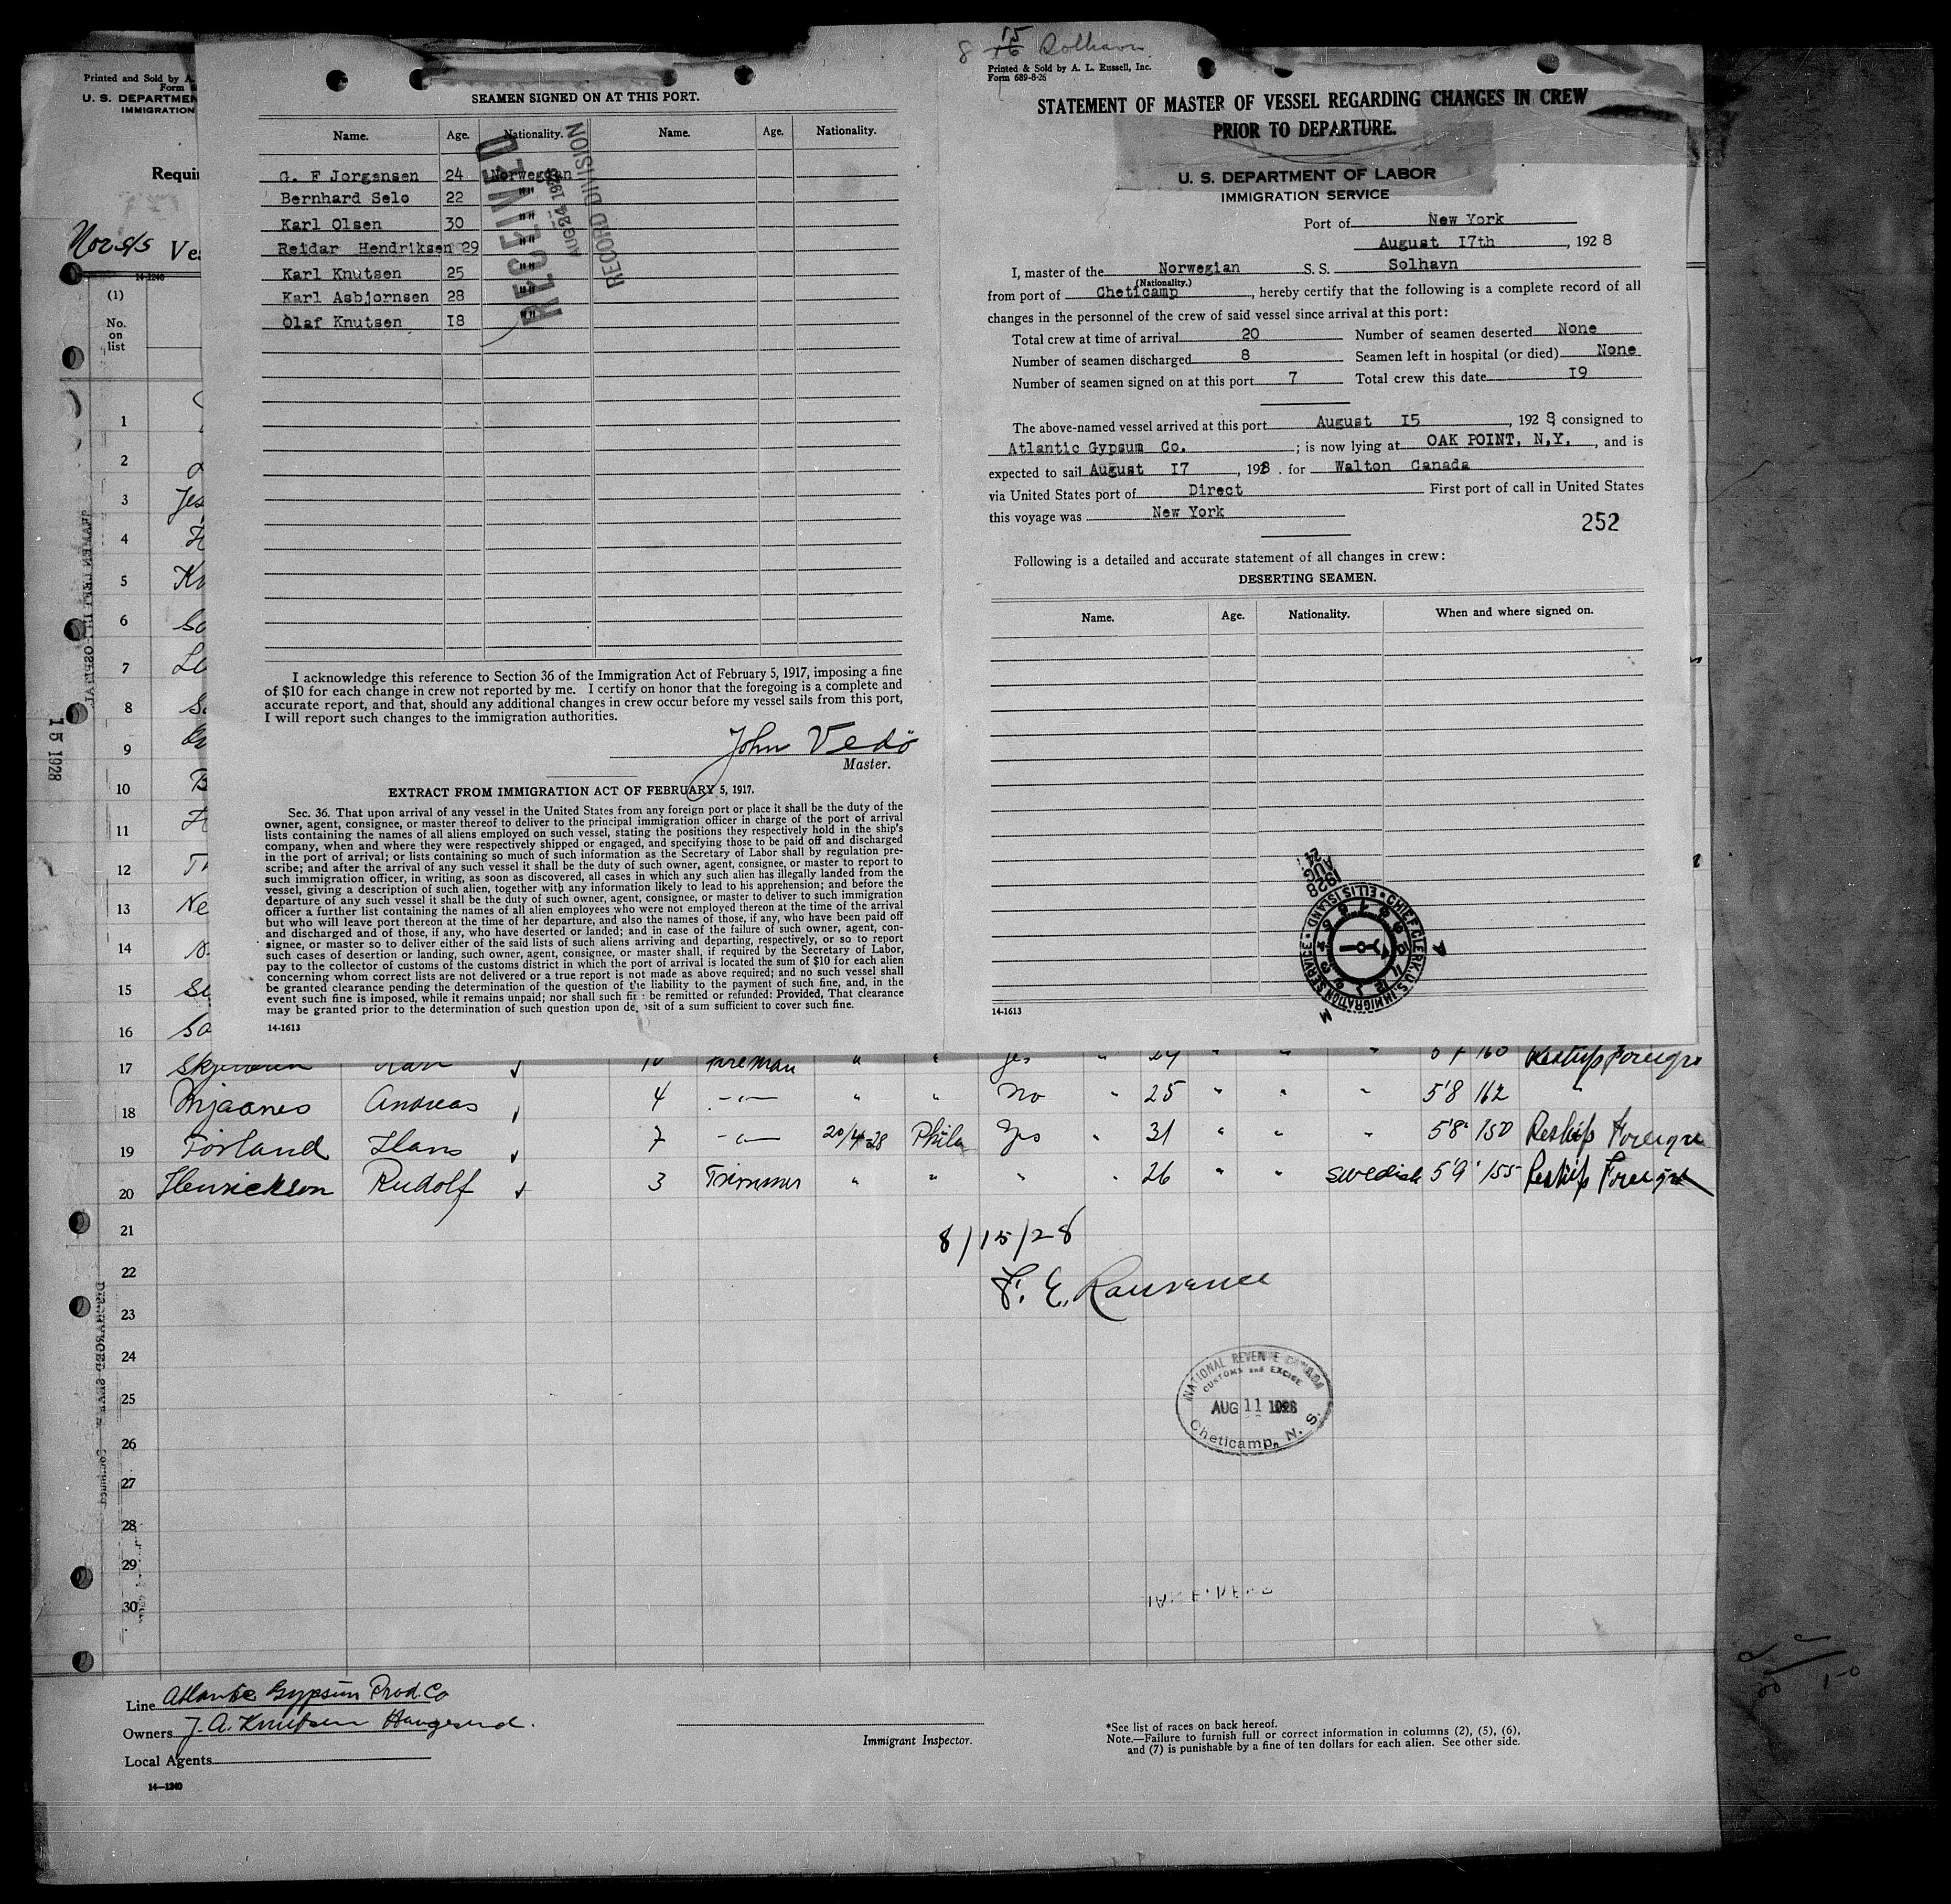 Printed and Sold by A.
Form
U. S. DEPARTMEN
IMMIGRATION
Requir
Nor s/s Ves
14-1240
(1)
No.
on
list
SEAMEN SIGNED ON AT THIS PORT.
Name. Age. Nationality. Name. Age. Nationality.
G. F Jorgensen 24 Norwegian
Bernhard Selo 22 ""
Karl Olsen 30 ""
Reidar Hendriksen 29 ""
Karl Knutsen 25 ""
Karl Asbjornsen 28 ""
Olaf Knutsen I8 ""
RECEIVED
AUG 24 1928
RECORD DIVISION
I acknowledge this reference to Section 36 of the Immigration Act of February 5, 1917, imposing a fine
of $10 for each change in crew not reported by me. I certify on honor that the foregoing is a complete and
accurate report, and that, should any additional changes in crew occur before my vessel sails from this port,
I will report such changes to the immigration authorities.
John Vedö
Master.
EXTRACT FROM IMMIGRATION ACT OF FEBRUARY 5, 1917.
Sec. 36. That upon arrival of any vessel in the United States from any foreign port or place it shall be the duty of the
owner, agent, consignee, or master thereof to deliver to the principal immigration officer in charge of the port of arrival
lists containing the names of all aliens employed on such vessel, stating the positions they respectively hold in the ship's
company, when and where they were respectively shipped or engaged, and specifying those to be paid off and discharged
in the port of arrival; or lists containing so much of such information as the Secretary of Labor shall by regulation pre-
scribe; and after the arrival of any such vessel it shall be the duty of such owner, agent, consignee, or master to report to
such immigration officer, in writing, as soon as discovered, all cases in which any such alien has illegally landed from the
vessel, giving a description of such alien, together with any information likely to lead to his apprehension; and before the
departure of any such vessel it shall be the duty of such owner, agent, consignee, or master to deliver to such immigration
officer a further list containing the names of all alien employees who were not employed thereon at the time of the arrival
but who will leave port thereon at the time of her departure, and also the names of those, if any, who have been paid off
and discharged and of those, if any, who have deserted or landed; and in case of the failure of such owner, agent, con-
signee, or master so to deliver either of the said lists of such aliens arriving and departing, respectively, or so to report
such cases of desertion or landing, such owner, agent, consignee, or master shall, if required by the Secretary of Labor,
pay to the collector of customs of the customs district in which the port of arrival is located the sum of $10 for each alien
concerning whom correct lists are not delivered or a true report is not made as above required; and no such vessel shall
be granted clearance pending the determination of the question of the liability to the payment of such fine, and, in the
event such fine is imposed, while it remains unpaid; nor shall such fine be remitted or refunded: Provided, That clearance
may be granted prior to the determination of such question upon deposit of a sum sufficient to cover such fine.
14-1613
8 15 16 Solhavn
Printed & Sold by A. L. Russell, Inc.
Form 689-8-26
STATEMENT OF MASTER OF VESSEL REGARDING CHANGES IN CREW
PRIOR TO DEPARTURE.
U. S. DEPARTMENT OF LABOR
IMMIGRATION SERVICE
Port of New York
August I7th, 1928
I, master of the Norwegian S. S. Solhavn
(Nationality.)
from port of Cheticamp, hereby certify that the following is a complete record of all
changes in the personnel of the crew of said vessel since arrival at this port:
Total crew at time of arrival 20 Number of seamen deserted None
Number of seamen discharged 8 Seamen left in hospital (or died) None
Number of seamen signed on at this port 7 Total crew this date I9
The above-named vessel arrived at this port August I5, 1928, consigned to
Atlantic Gypsum Co. ; is now lying at OAK POINT, N.Y., and is
expected to sail August I7, 1928. for Walton Canada
via United States port of Direct First port of call in United States
this voyage was New York
252
Following is a detailed and accurate statement of all changes in crew:
DESERTING SEAMEN.
Name. Age. Nationality. When and where signed on.
1928 AUG. 24
CHIEF CLERK, U.S. IMMIGRATION SERVICE • ELLIS ISLAND •
A M
14-1613
SEAMEN LEFT IN HOSPITAL
15 1928
1
2
3 Jes
4 H
5 Kn
6 So
7
8
9
10 B
11 H
12 Th
13 Ne
14
15
16 So
17 Fireman " " Yes " " " " 160 Reship Foreign
18 Mjaanes Andreas 4 -"- " " No " 25 " " " 5'8 162 "
19 Forland Hans 7 -"- 20/4-28 Phila Yes " 31 " " " 5'8" 150 Reship Foreign
20 Henrickson Rudolf 3 Trimmer " " " " 26 " " Swedish 5'9" 155 Reship Foreign
21
22
23
24
25
26
27
28
29
30
8/15/28
NATIONAL REVENUE CANADA
CUSTOMS and EXCISE
AUG 11 1928
Cheticamp, N. S.
Line Atlantic Gypsum Prod. Co
Owners J. A. Knutsen Haugesund.
Local Agents
14—1240
Immigrant Inspector.
*See list of races on back hereof.
Note.—Failure to furnish full or correct information in columns (2), (5), (6),
and (7) is punishable by a fine of ten dollars for each alien. See other side.